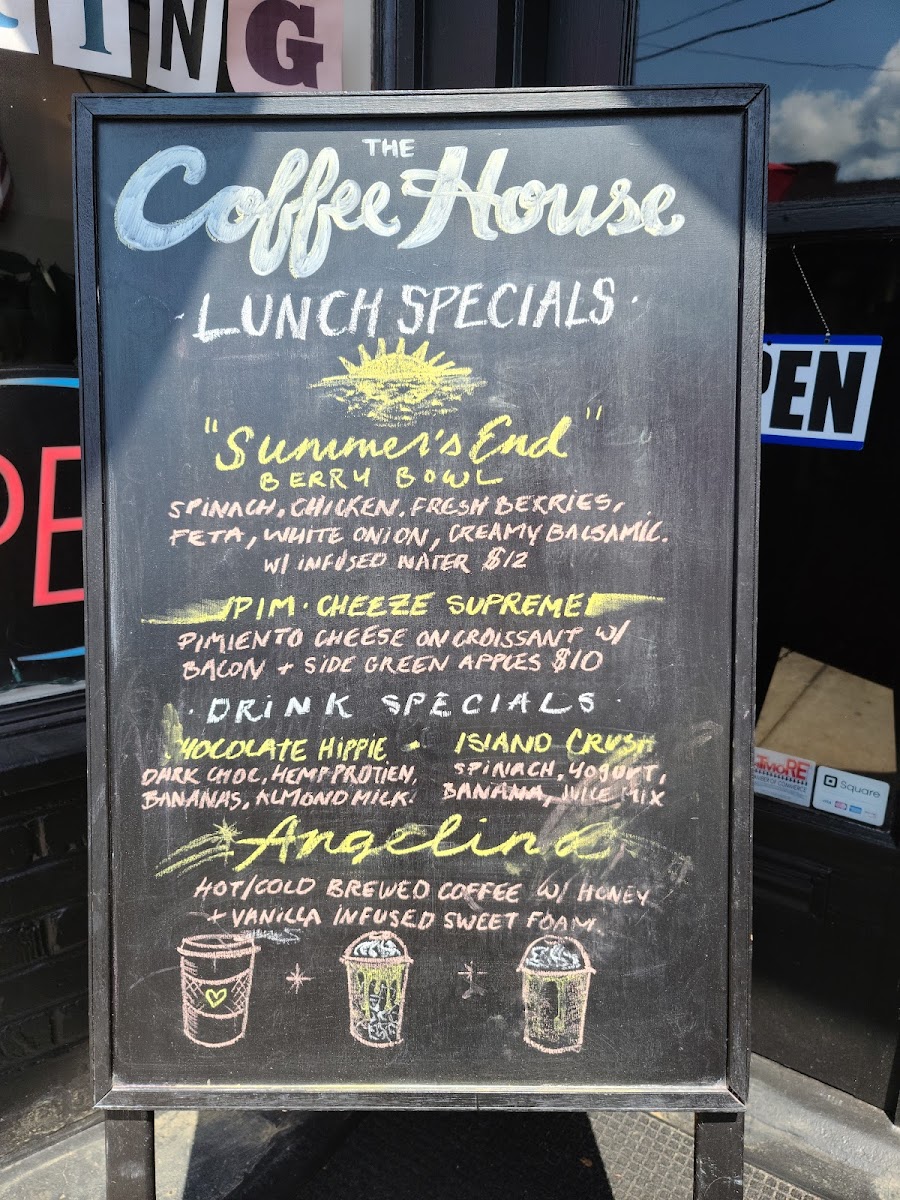 ING
THE
Coffee House
· LUNCH SPECIALS ·
"Summer's End"
BERRY BOWL
SPINACH, CHICKEN, FRESH BERRIES,
FETA, WHITE ONION, CREAMY BALSAMIC.
W/ INFUSED WATER $12
PIM · CHEEZE SUPREME
PIMIENTO CHEESE ON CROISSANT W/
BACON + SIDE GREEN APPLES $10
· DRINK SPECIALS ·
CHOCOLATE HIPPIE - ISLAND CRUSH
DARK CHOC, HEMP PROTIEN, SPINACH, YOGURT,
BANANAS, ALMOND MILK. BANANA, JUICE MIX
Angelina
HOT/COLD BREWED COFFEE W/ HONEY
+ VANILLA INFUSED SWEET FOAM.
PEN
PE
Square